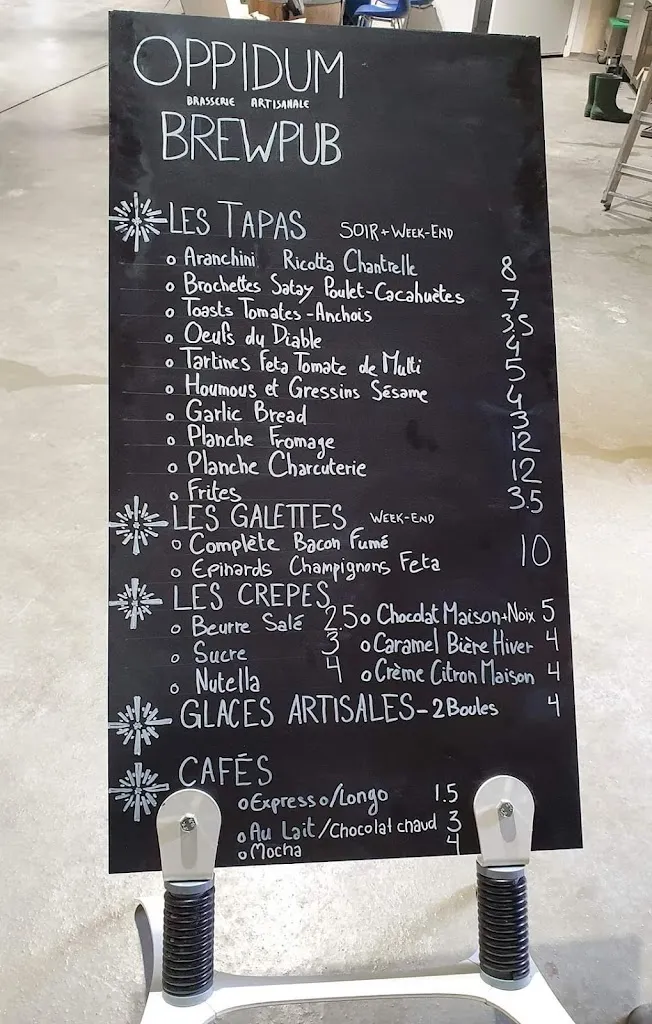 OPPIDUM
BRASSERIE ARTISANALE
BREWPUB
LES TAPAS SOIR + WEEK-END
o Aranchini Ricotta Chantrelle 8
o Brochettes Satay Poulet-Cacahuètes 7
o Toasts Tomates - Anchois 3.5
o Oeufs du Diable 4
o Tartines Feta Tomate de Multi 5
o Houmous et Gressins Sésame 4
o Garlic Bread 3
o Planche Fromage 12
o Planche Charcuterie 12
o Frites 3.5
LES GALETTES WEEK-END
o Complète Bacon Fumé 10
o Epinards Champignons Feta
LES CREPES
o Beurre Salé 2.5 o Chocolat Maison+Noix 5
o Sucre 3 o Caramel Bière Hiver 4
o Nutella 4 o Crème Citron Maison 4
GLACES ARTISALES - 2 Boules 4
CAFÉS
o Expresso/Longo 1.5
o Au Lait/Chocolat chaud 3
o Mocha 4